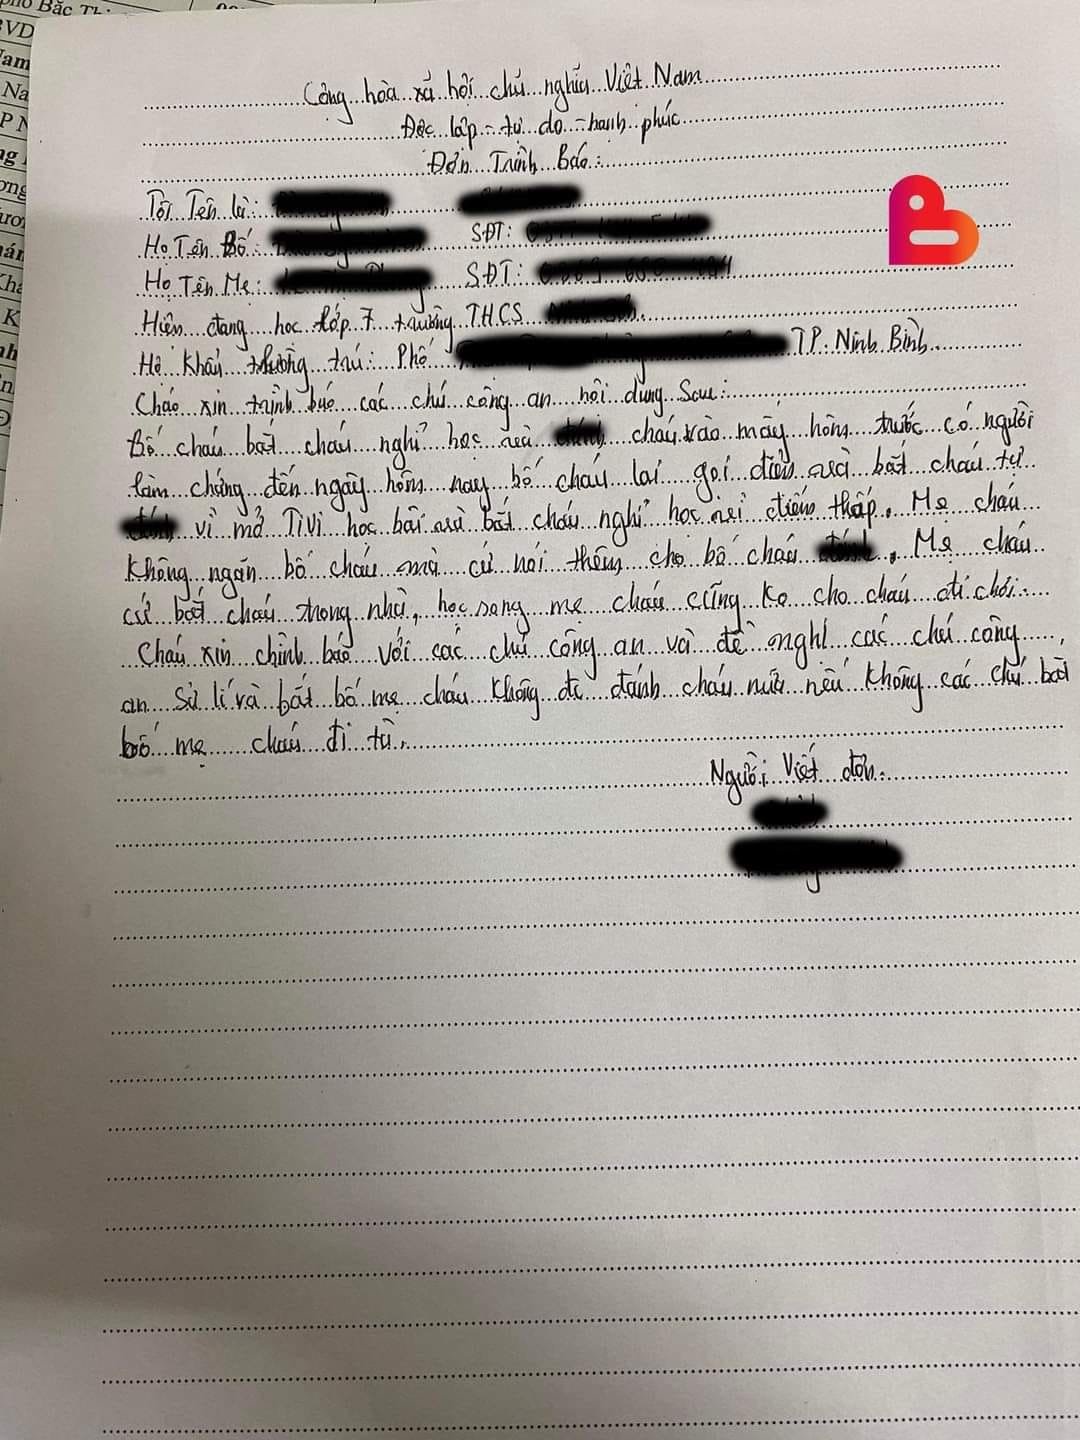 Cộng hòa xã hội chủ nghĩa Việt Nam
Độc lập - tự do - hạnh phúc
Đơn Trình Báo:
Tôi Tên là:
Họ Tên Bố: SĐT:
Họ Tên Mẹ: SĐT:
Hiện đang học lớp 7 trường THCS
Hộ Khẩu thường trú: Phố TP. Ninh Bình
Cháo xin trình báo các chú công an nội dung Sau:
Bố cháu bắt cháu nghỉ học và cháu vào mấy hôm trước có người
làm chứng đến ngày hôm nay bố cháu lại gọi điện và bắt cháu tự
vì mở Tivi học bài và bắt cháu nghỉ học vì điểm thấp. Mẹ cháu
Không ngăn bố cháu mà cứ nói thêm cho bố cháu Mẹ cháu
cứ bắt cháu trong nhà, học sang mẹ cháu cũng Ko cho cháu đi chơi.
Cháu xin chình báo với các chú công an và đề nghị các chú công
an Sử lí và bắt bố mẹ cháu không đc đánh cháu nữa nếu không các chú bắt
bố mẹ cháu đi tù.
Người Viết đơn.